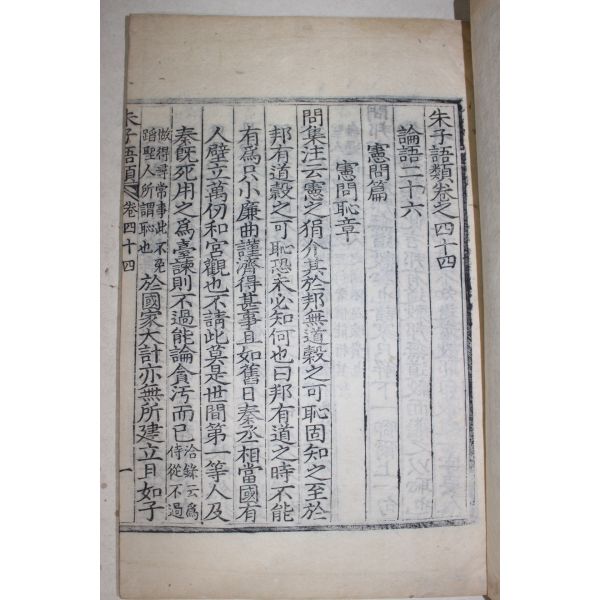 朱子語類卷之四十四
論語二十六
憲問篇
憲問恥章
問集注云憲之狷介其於邦無道穀之可恥固知之至於
邦有道穀之可恥恐未必知何也曰邦有道之時不能
有爲只小廉曲謹濟得甚事且如舊日秦丞相當國有
人壁立萬仞和宮觀也不請此莫是世間第一等人及
秦旣死用之爲臺諫則不過能論貪汚而已洽錄云爲
侍從不過
做得尋常事此不免
蹈聖人所謂恥也於國家大計亦無所建立且如子
朱子語類 卷四十四 一